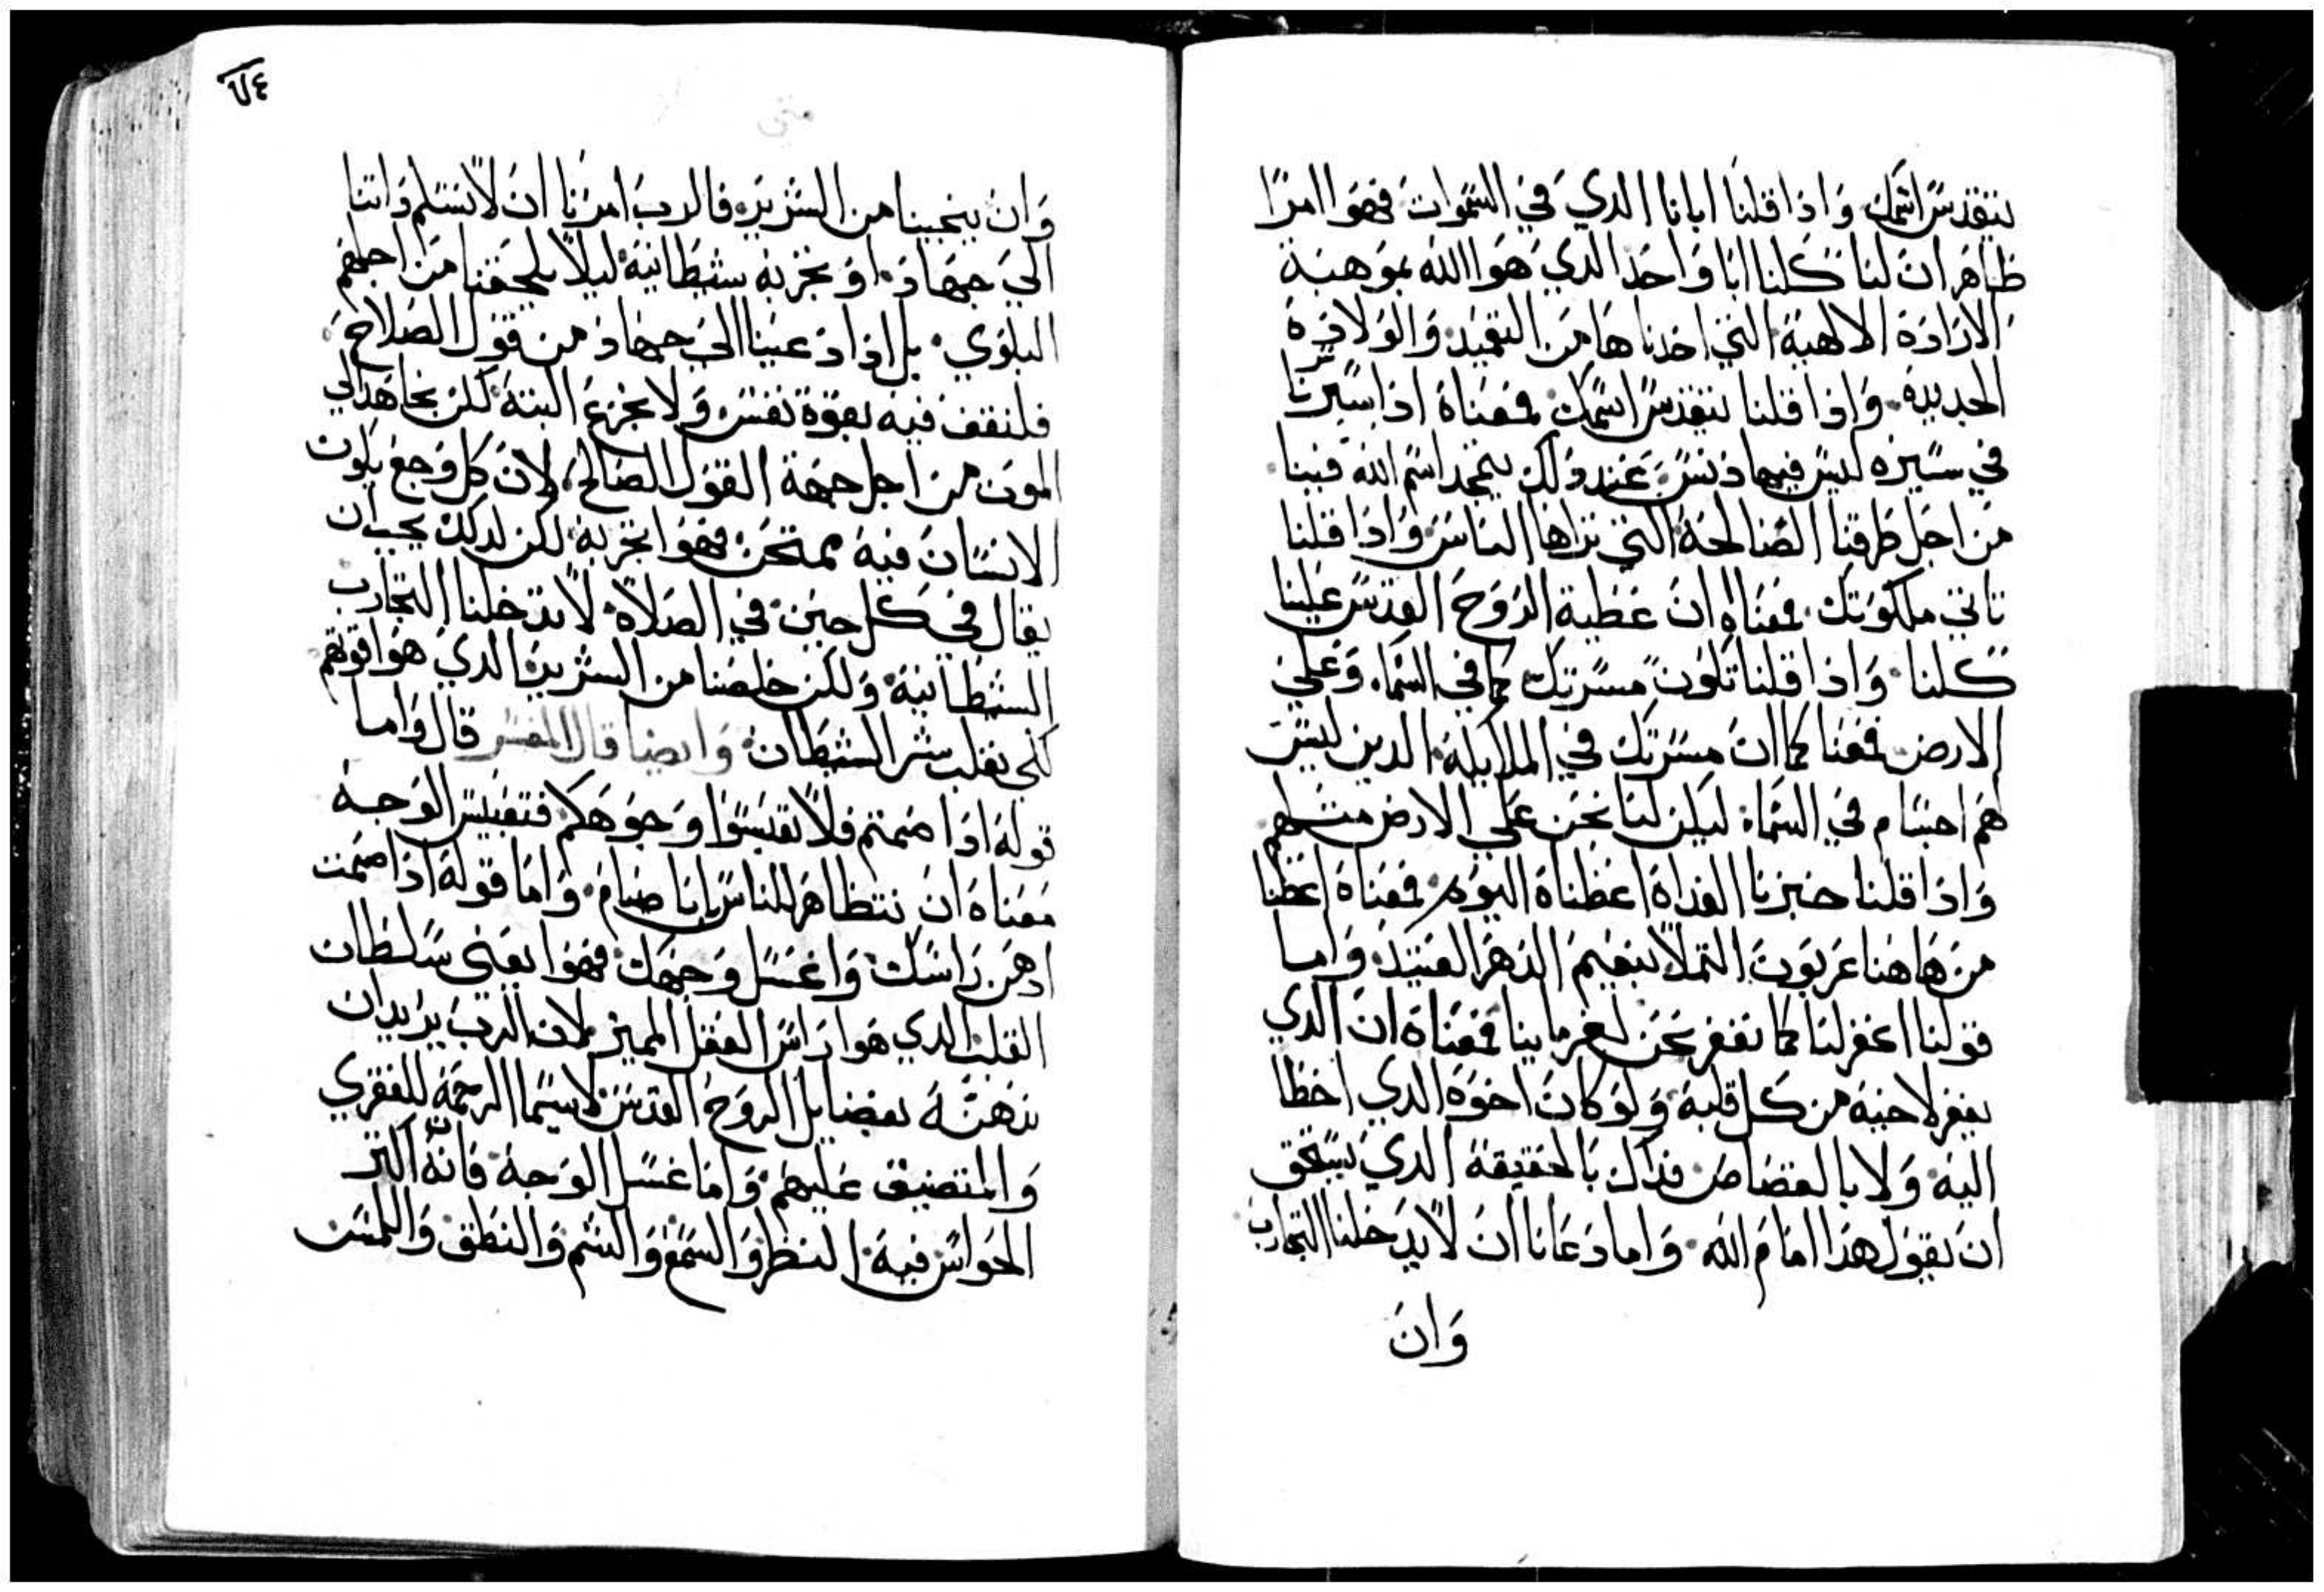 يتقدس اسمك واذا قلنا ابانا الدي في السموات فهوا امرا
ظاهر ان لنا كلنا ابا واحد الدي هوا الله بموهبة
الارادة الالاهية التي اخدناها من التعميد والولادة
الجديدة واذا قلنا يتقدس اسمك فمعناه اذا سيرنا
في سيره ليس فيها دنس عند دلك يتمجد اسم الله فينا
من اجل طرقنا الصالحة التي تراها الناس واذا قلنا
تاتي ملكوتك فمعناه ان عطية الروح القدس علينا
كلنا واذا قلنا تكون مسرتك كما في السماء وعلي
الارض فمعنا كما ان مسرتك في الملايكة الدين ليس
هم اجسام في السماء ليكن لنا نحن علي الارض مثلهم
واذا قلنا خبزنا الغداة اعطناة اليوم فمعناة اعطنا
من هاهنا عربون التملا بنعيم الدهر العتيد واما
قولنا اغفر لنا كما نغفر نحن لغرماينا فمعناة ان الدي
يغفر لاخيه من كل قلبه ولو كان اخوه الدي اخطا
اليه ولا بالقصاص فداك بالحقيقة الدي يستحق
ان يقول هدا امام الله واما دعانا ان لا يدخلنا التجارب
وان
٦٤
متى
وان ينجينا من الشرير فالرب امرنا ان لا نسلم دواتنا
الي جهاد او تجربة شيطانية ليلا يلحقنا من اجلهم
البلوي بل اذا دعينا الي جهاد من قول الصلاح
فلنقف فيه بقوة نفس ولا نجزع البتة لكن نجاهد الي
الموت من اجل جهة القول الصالح لان كل وجع يكون
الانسان فيه ممتحن فهوا تجربة لكن لدلك يجب ان
يقال في كل حين في الصلاة لا تدخلنا التجارب
الشيطانية ولكن خلصنا من الشرير الدي هوا قوتهم
لكي نغلب شر الشيطان وايضا قال المفسر قال واما
قوله ادا صمتم فلا تعبسوا وجوهكم فتعبيس الوجه
معناه ان نتظاهر للناس باننا صيام واما قوله اذا صمت
ادهن راسك واغسل وجهك فهوا يعني سلطان
القلب الدي هوا راس العقل المميز لان الرب يريد ان
ندهنه بفضايل الروح القدس لاسيما الرحمة للفقري
والمتضيق عليهم واما غسل الوجه فانه اكثر
الحواس فيه النظر والسمع والشم والنطق واللمس